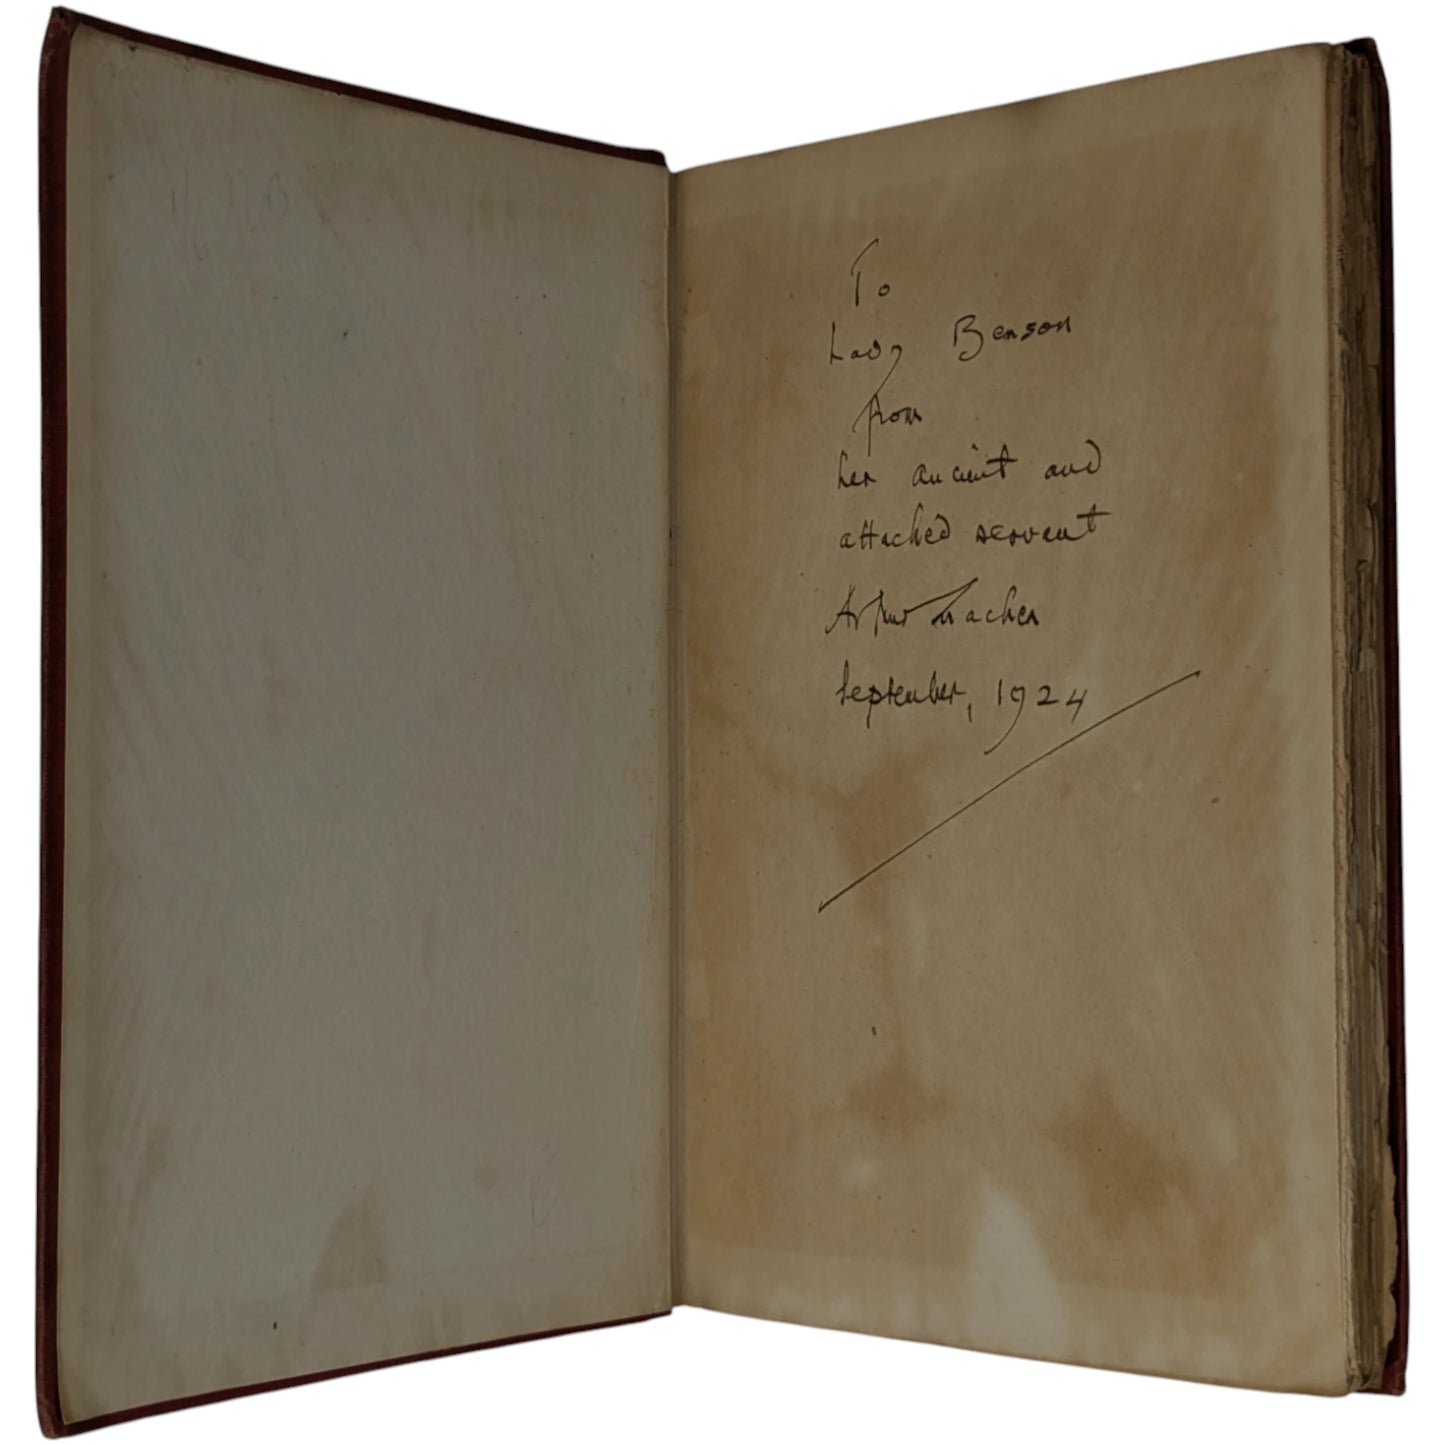 To
Lady Benson
from
her ancient and
attached servant
Arthur Machen
September, 1924